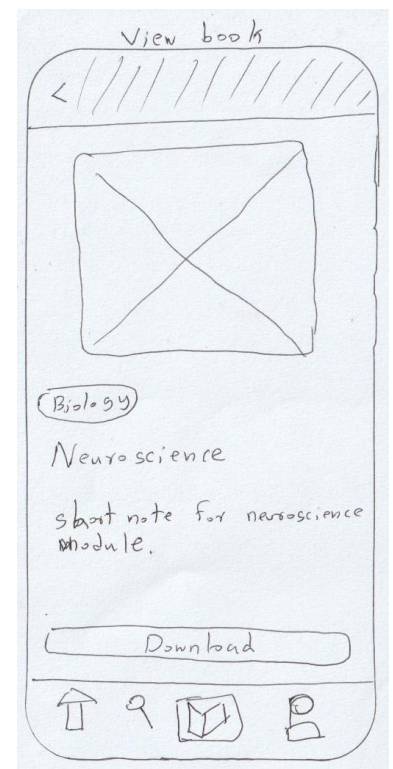 View book
Biology
Neuroscience
short note for neuroscience
module.
Download